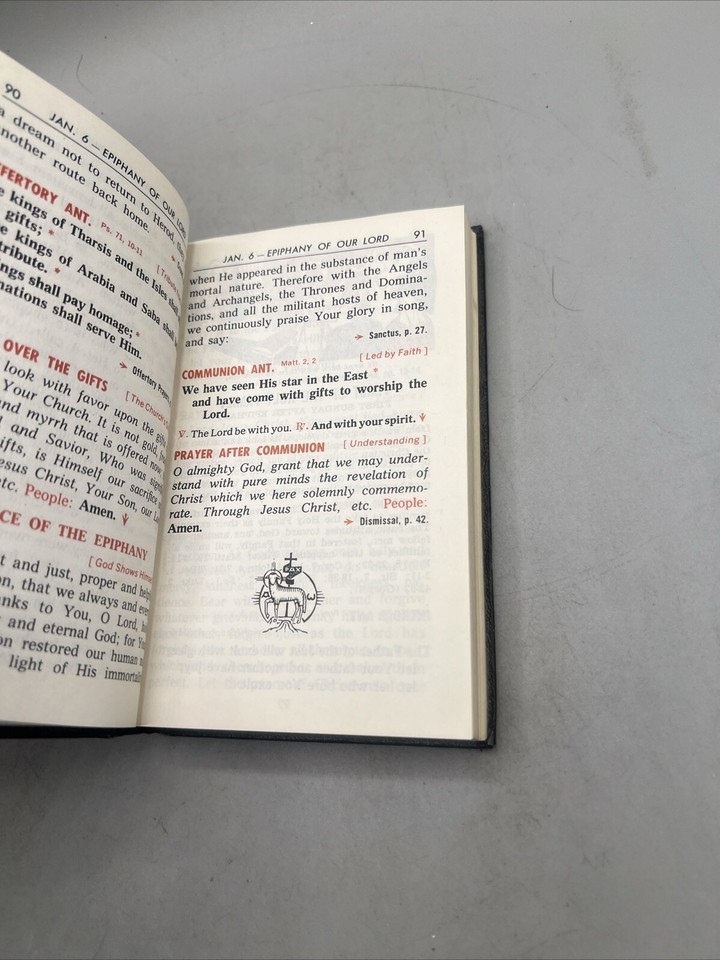 90 JAN. 6 — EPIPHANY OF OUR LORD
a dream not to return to Herod,
another route back home.
OFFERTORY ANT. Ps. 71, 10-11
kings of Tharsis and the Isles
gifts; *
kings of Arabia and Saba
tribute. *
shall pay homage; *
nations shall serve Him.
➛ Offertory Prayers,
OVER THE GIFTS
look with favor upon the gifts
Your Church. It is not gold,
and myrrh that is offered now
and Savior, Who was
gifts, is Himself our sacrifice
Jesus Christ, Your Son, our
etc. People: Amen. ⸙
OF THE EPIPHANY
[ God Shows
and just, proper and
that we always and
thanks to You, O Lord,
and eternal God; for
restored our human
light of His
JAN. 6 — EPIPHANY OF OUR LORD 91
when He appeared in the substance of man's
mortal nature. Therefore with the Angels
and Archangels, the Thrones and Domina-
tions, and all the militant hosts of heaven,
we continuously praise Your glory in song,
and say:
➛ Sanctus, p. 27.
COMMUNION ANT. Matt. 2, 2 [ Led by Faith ]
We have seen His star in the East *
and have come with gifts to worship the
Lord.
℣. The Lord be with you. ℟. And with your spirit. ⸙
PRAYER AFTER COMMUNION [ Understanding ]
O almighty God, grant that we may under-
stand with pure minds the revelation of
Christ which we here solemnly commemo-
rate. Through Jesus Christ, etc. People:
Amen.
➛ Dismissal, p. 42.